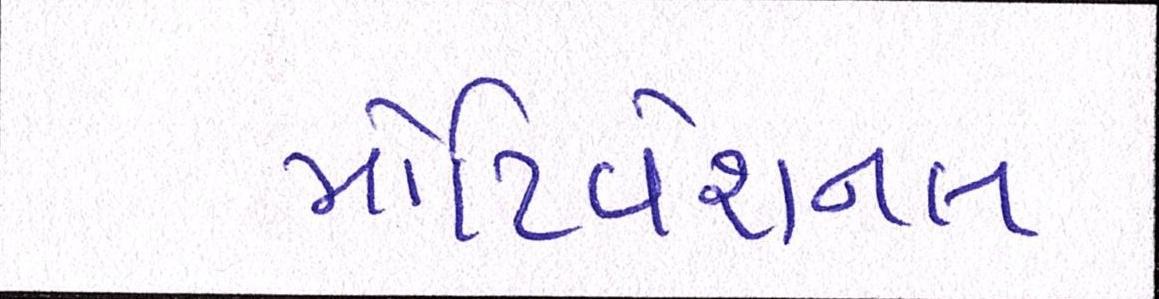 મોટિવેશનલ